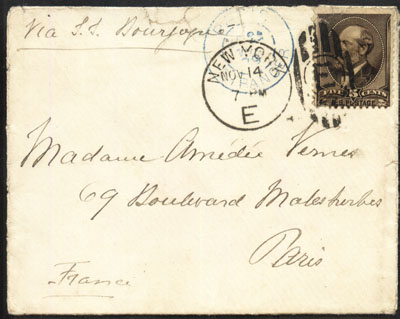 Via S.S. Bourgogne
NEW YORK
NOV 14
7 PM
E
FIVE 5 CENTS
U.S. POSTAGE
Madame Amédée Vernes
69 Boulevard Malesherbes
Paris
France